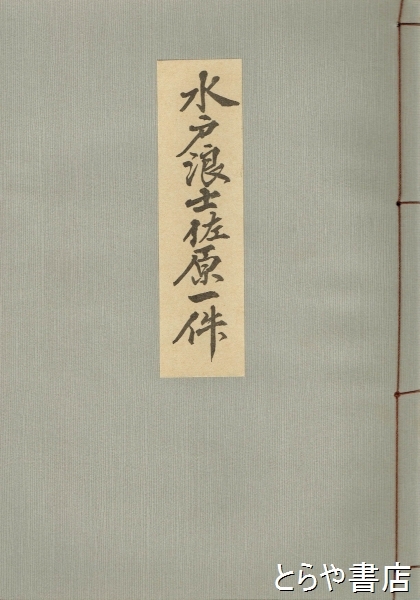 水戸浪士佐原一件
とらや書店